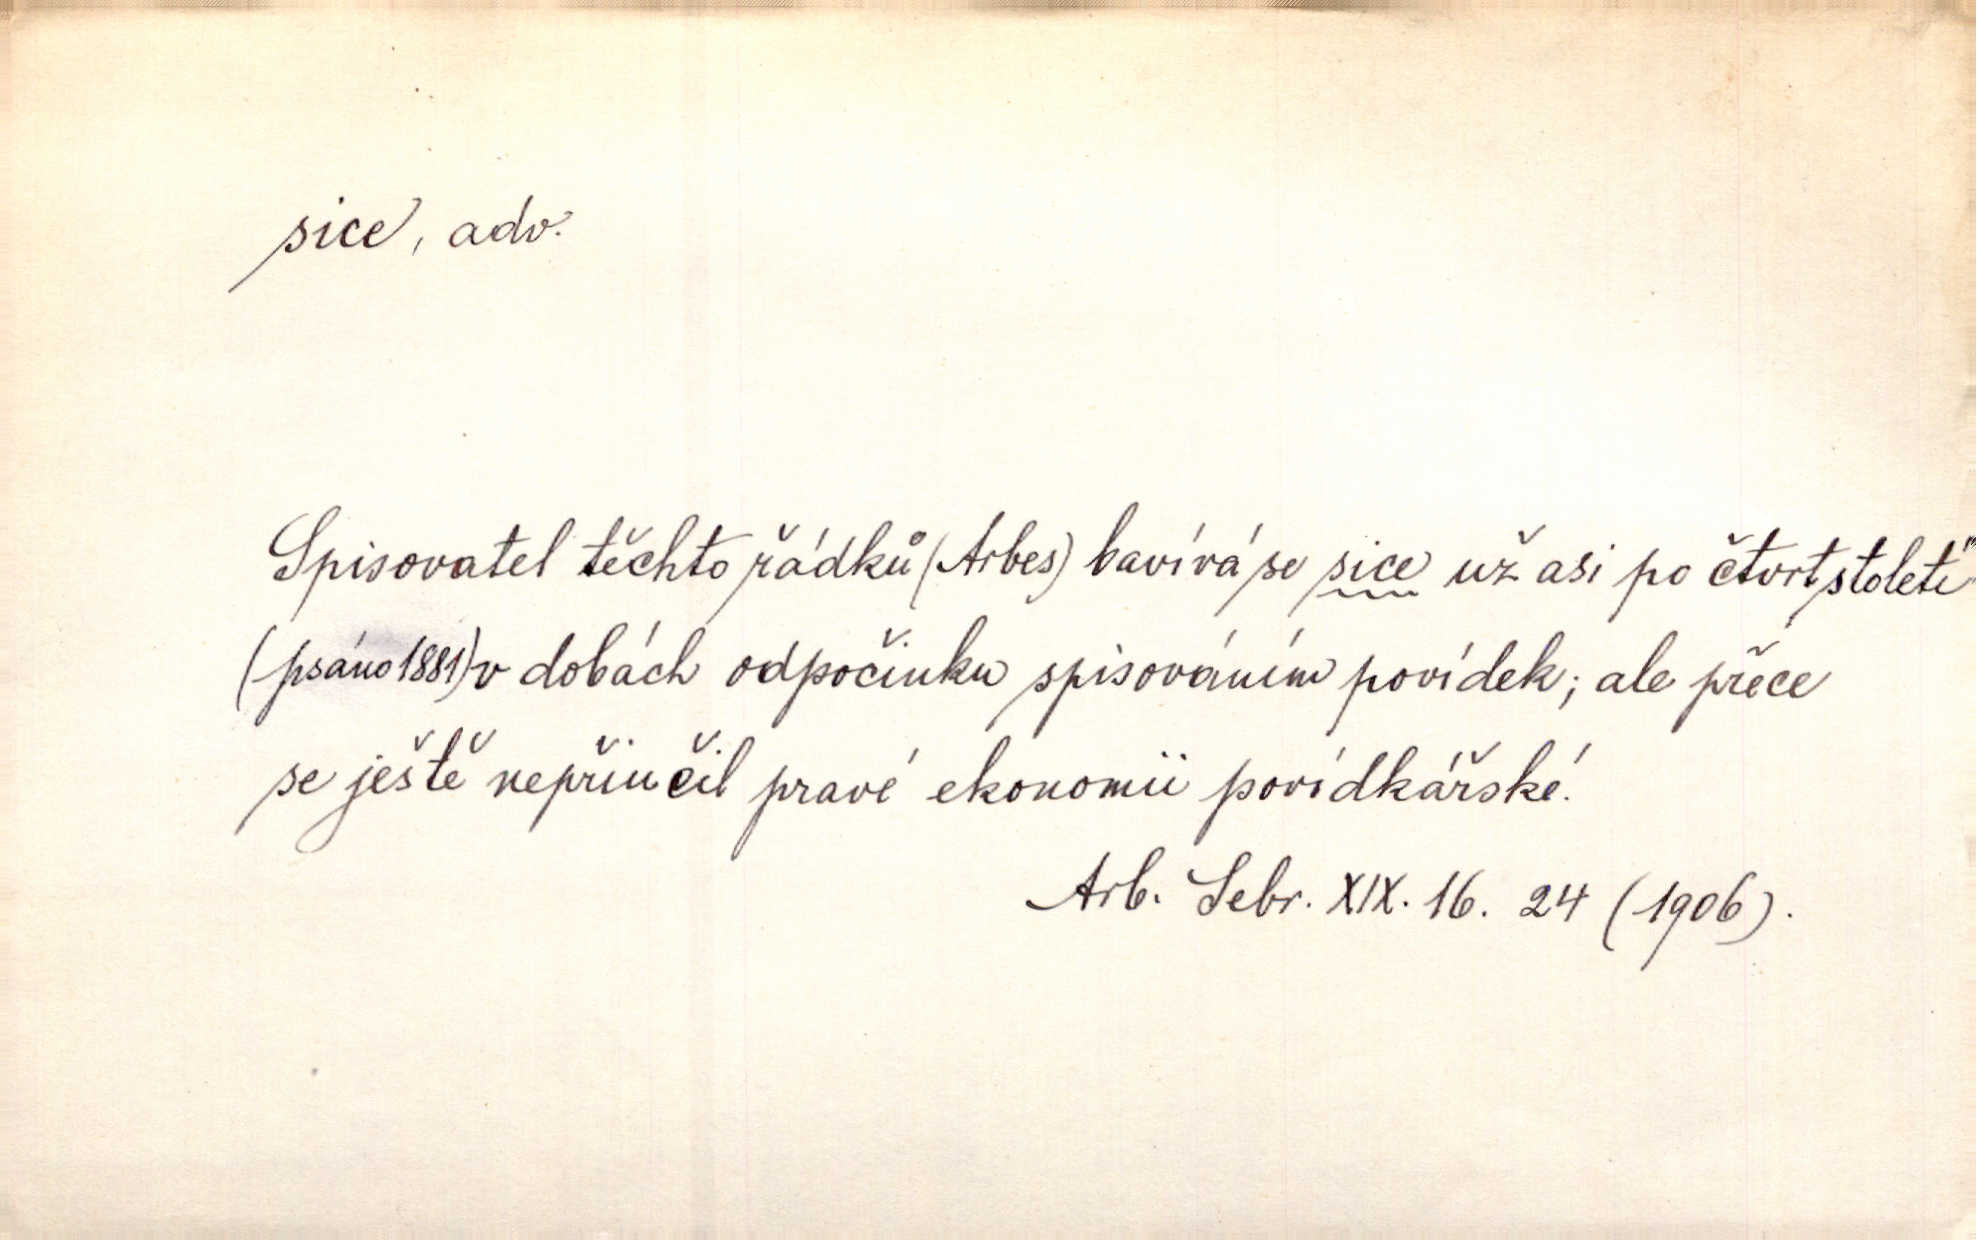 sice, adv.
Spisovatel těchto řádků (Arbes) bavívá se sice už asi po čtvrt století
(psáno 1881) v dobách odpočinku spisováním povídek; ale přece
se ještě nepřiučil pravé ekonomii povídkářské.
Arb. Sebr. XIX. 16. 24 (1906).